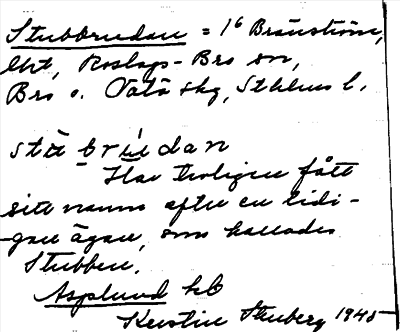 Stubbrudan = 1⁶ Bränström,
Roslags-Bro sn,
Bro o. Vätö skg, Sthlms l.
Har troligen fått
sitt namn efter en tidi-
gare ägare, som kallades
Stubben.
Asplund hb
Kerstin Stenberg 1945